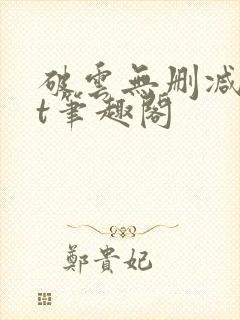 破雲無刪减
t筆趣閣
鄭貴妃